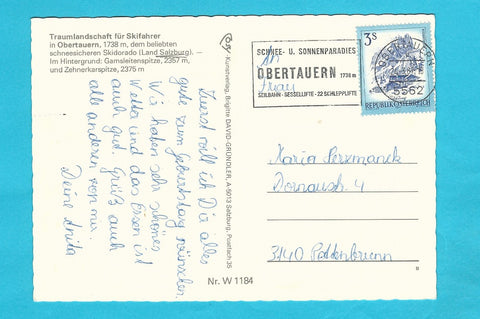 Traumlandschaft für Skifahrer
in Obertauern, 1738 m, dem beliebten
schneesicheren Skidorado (Land Salzburg). —
Im Hintergrund: Gamsleitenspitze, 2357 m,
und Zehnerkarspitze, 2375 m
Zuerst will ich Dir alles
gute zum Geburtstag wünschen.
Wir haben sehr schönes
Wetter und das Essen ist
auch gut. Grüß auch
alle anderen von mir.
Deine Anita
Kunstverlag, Brigitte DAVID-GRÜNDLER, A-5013 Salzburg, Postfach 35
Nr. W 1184
SCHNEE- U. SONNENPARADIES
An
OBERTAUERN 1738 m
Frau
SEILBAHN - SESSELLIFTE - 22 SCHLEPPLIFTE
3S
REPUBLIK ÖSTERREICH
OBERTAUERN
5562
Maria Perzmanek
Dornaustr. 4
3140 Pottenbrunn